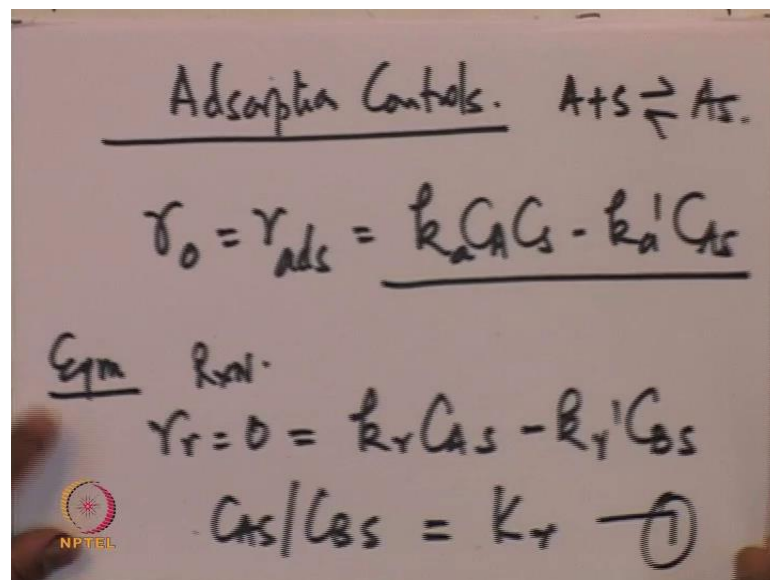 Adsorption Controls. A+S ⇌ AS.
r₀ = r_ads = kₐC_AC_S - kₐ'C_AS
Eqm Rxn.
r_r = 0 = k_rC_AS - k_r'C_BS
C_AS/C_BS = K_r — ①
NPTEL